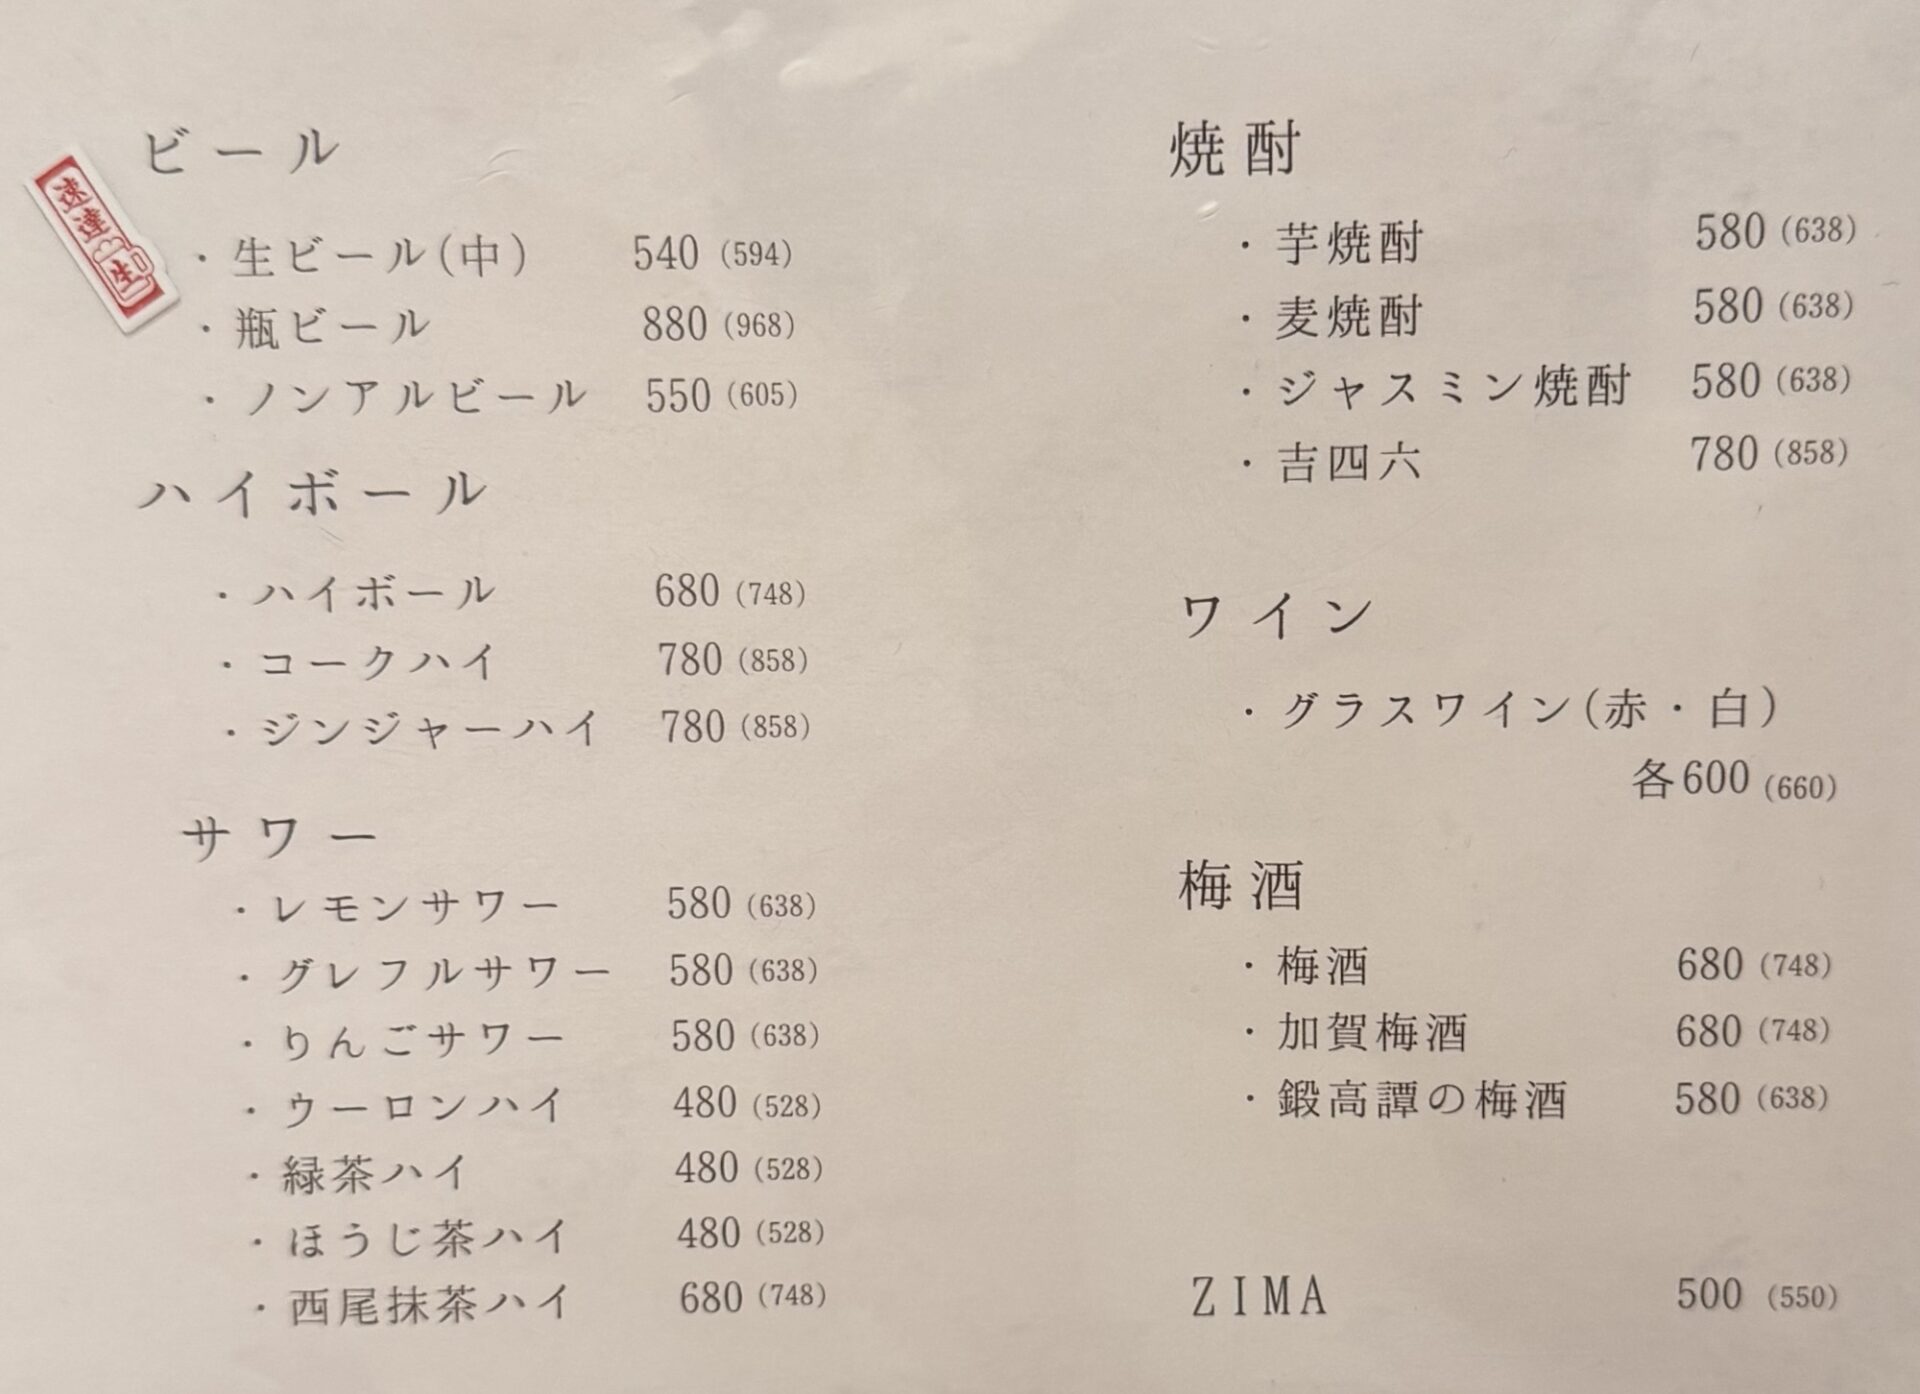 ビール
速達生
・生ビール(中) 540 (594)
・瓶ビール 880 (968)
・ノンアルビール 550 (605)
ハイボール
・ハイボール 680 (748)
・コークハイ 780 (858)
・ジンジャーハイ 780 (858)
サワー
・レモンサワー 580 (638)
・グレフルサワー 580 (638)
・りんごサワー 580 (638)
・ウーロンハイ 480 (528)
・緑茶ハイ 480 (528)
・ほうじ茶ハイ 480 (528)
・西尾抹茶ハイ 680 (748)
焼酎
・芋焼酎 580 (638)
・麦焼酎 580 (638)
・ジャスミン焼酎 580 (638)
・吉四六 780 (858)
ワイン
・グラスワイン(赤・白)
各600 (660)
梅酒
・梅酒 680 (748)
・加賀梅酒 680 (748)
・鍛高譚の梅酒 580 (638)
ZIMA 500 (550)